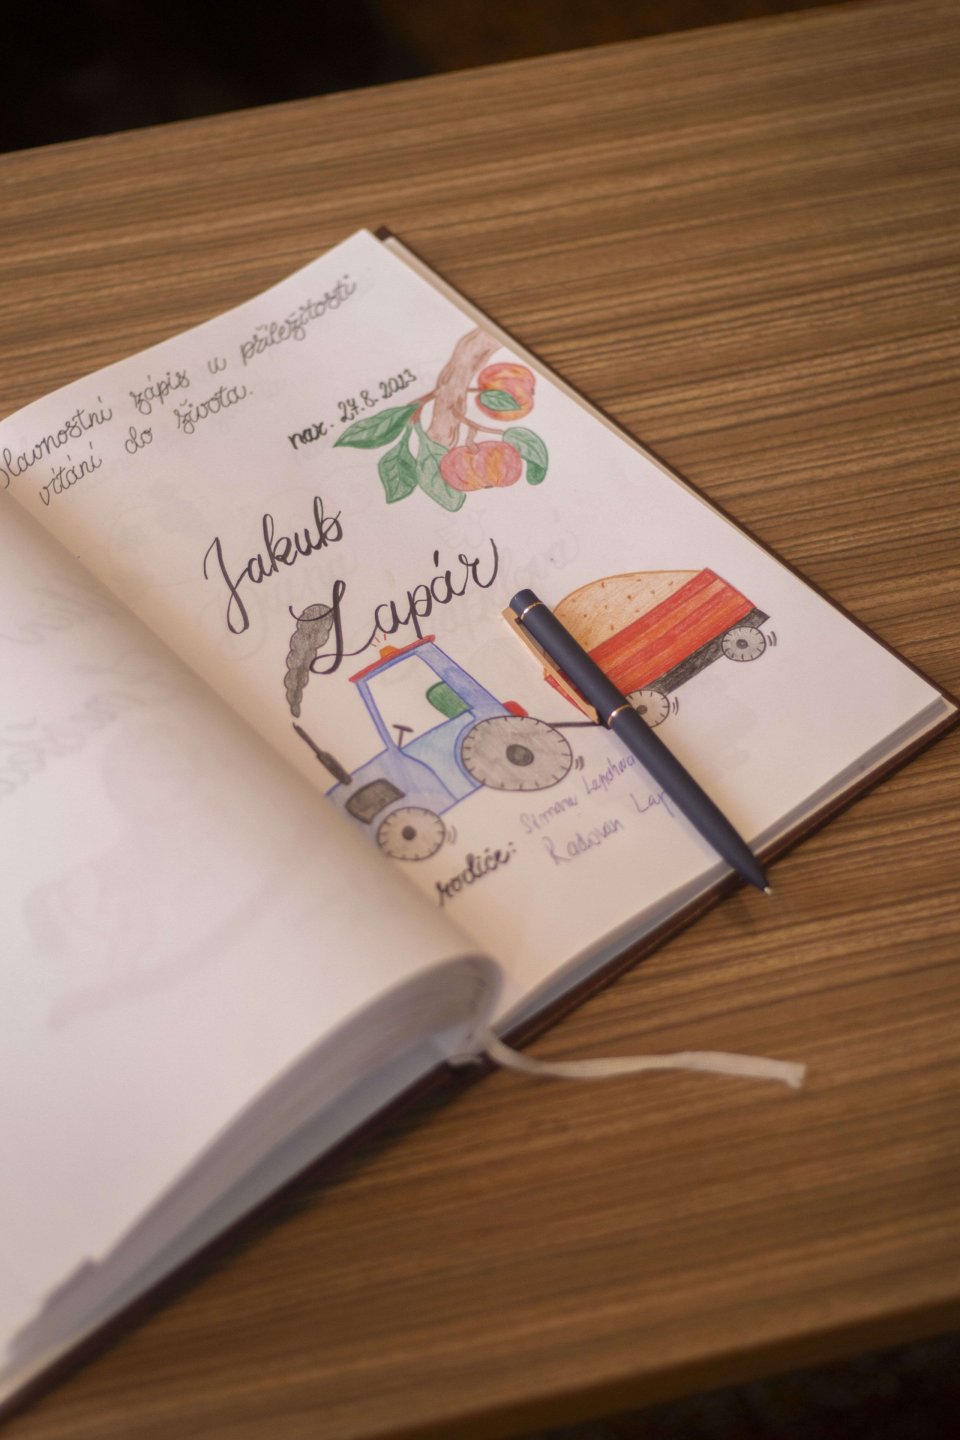 Slavnostní zápis u příležitosti
vítání do života.
nar. 27.8.2023
Jakub
Lapár
rodiče:
Simona
Radovan